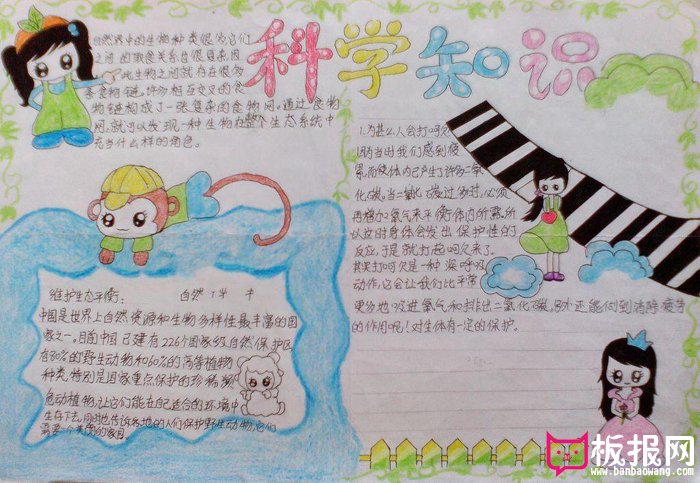 科学知识
自然界中的生物种类很多它们
之间的取食关系自很复杂,因
此生物之间就存在很多
条食物链,许多相互交叉的食
物链构成了一张复杂的食物网。通过食物
网,就可以发现一种生物在整个生态系统中
充当什么样的角色。
1.为甚么人会打呵欠
因为当时我们感到疲
累,而使体内已产生了许多二氧
化碳,当二氧化碳过多时,必须
再增加氧气来平衡体内所需,所
以这时身体会发出保护性的
反应,于是就打起呵欠来了。
其实打呵欠是一种深呼吸
动作,它会让我们比平常
更多地吸进氧气和排出二氧化碳,还能做到消除疲劳
的作用呢!对生体有一定的保护。
维护生态平衡: 自然
中国是世界上自然资源和生物多样性最丰富的国
家之一。目前中国已建有226个国家级自然保护区
有80%的野生动物和60%的高等植物
种类,特别是国家重点保护的珍稀濒
危动植物,让它们能在自己适合的环境中
生存下去,同时也告诉各地的人们保护野生动物,它们
需要一个美丽的家园
板报网
www.banbaowang.com